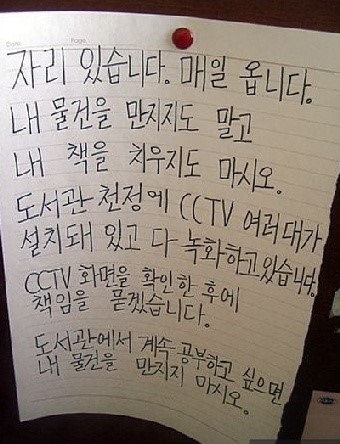 Date. Page.
자리 있습니다. 매일 옵니다.
내 물건을 만지지도 말고
내 책을 치우지도 마시오.
도서관 천정에 CCTV 여러대가
설치돼 있고 다 녹화하고 있습니다.
CCTV 화면을 확인한 후에
책임을 묻겠습니다.
도서관에서 계속 공부하고 싶으면
내 물건을 만지지 마시오.